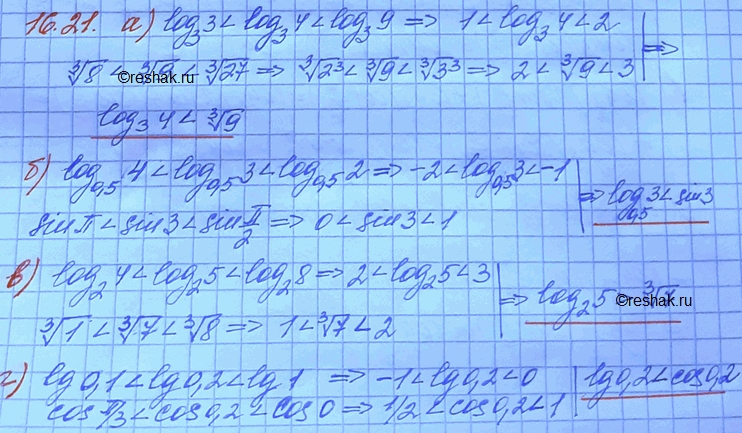 16.21. а) log₃3 < log₃4 < log₃9 => 1 < log₃4 < 2
∛8 < ∛9 < ∛27 => ∛2³ < ∛9 < ∛3³ => 2 < ∛9 < 3 =>
©reshak.ru
log₃4 < ∛9
б) log₀,₅4 < log₀,₅3 < log₀,₅2 => -2 < log₀,₅3 < -1
sinπ < sin3 < sin π/2 => 0 < sin3 < 1 => log₀,₅3 < sin3
в) log₂4 < log₂5 < log₂8 => 2 < log₂5 < 3
∛1 < ∛7 < ∛8 => 1 < ∛7 < 2 => log₂5 ∛7
©reshak.ru
г) lg0,1 < lg0,2 < lg1 => -1 < lg0,2 < 0 lg0,2 < cos0,2
cos π/3 < cos0,2 < cos0 => 1/2 < cos0,2 < 1